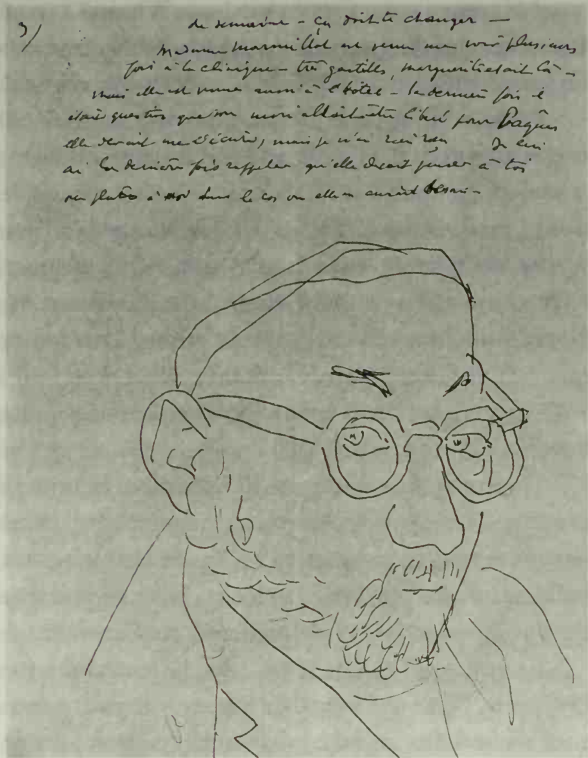 3/
de semaine - ça doit te changer -
Madame Marmillot est venue me voir plusieurs
fois à la clinique - très gentille, marguerite était là -
mais elle est venue aussi à l'hôtel - la dernière fois il
était question que son mari allait être libéré pour Pâques
elle devait me l'écrire, mais je n'ai rien reçu Je lui
ai la dernière fois rappeler qu'elle devait penser à toi
ou plutôt à moi dans le cas où elle en aurait besoin -